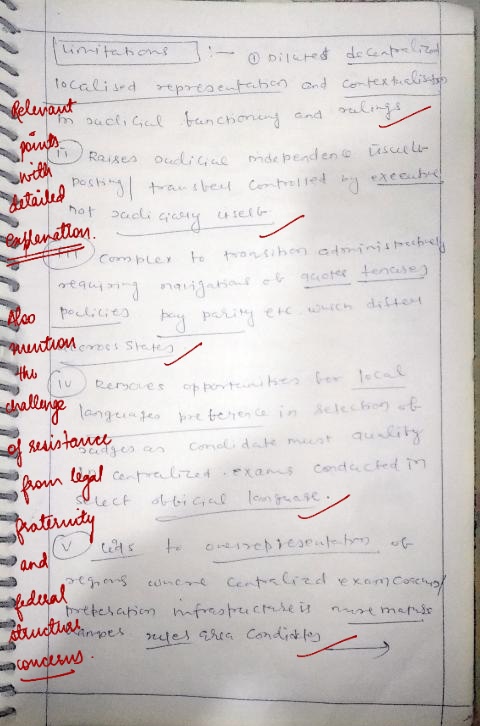 Limitations :- (i) Dilutes decentralized
localised representation and contextualisation
in judicial functioning and rulings
(ii) Raises judicial independence issues
posting/ transfers controlled by executive
not judiciary itself
(iii) Complex to transition administratively
requiring navigations of quotas tenures
policies pay parity etc. which differ
across states
(iv) Removes opportunities for local
languages preference in selection of
judges as candidate must qualify
in centralized exams conducted in
select official language.
(v) to overrepresentation of
regions where centralized exam
preparation infrastructure is more
area candidates
Relevant
points
with
detailed
explanation.
Also
mention
the
challenge
of resistance
from legal
fraternity
and
federal
structure
concerns.